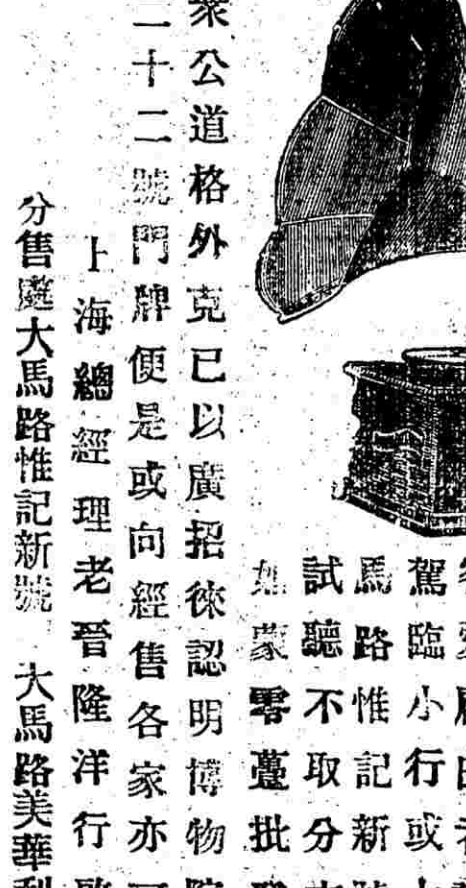 駕臨小行或
馬路惟記新
試聽不取分
如蒙零躉批
衆公道格外克已以廣招徠認明博物院
二十二號門牌便是或向經售各家亦可
上海總經理老晉隆洋行啟
分售處大馬路惟記新號 大馬路美華利